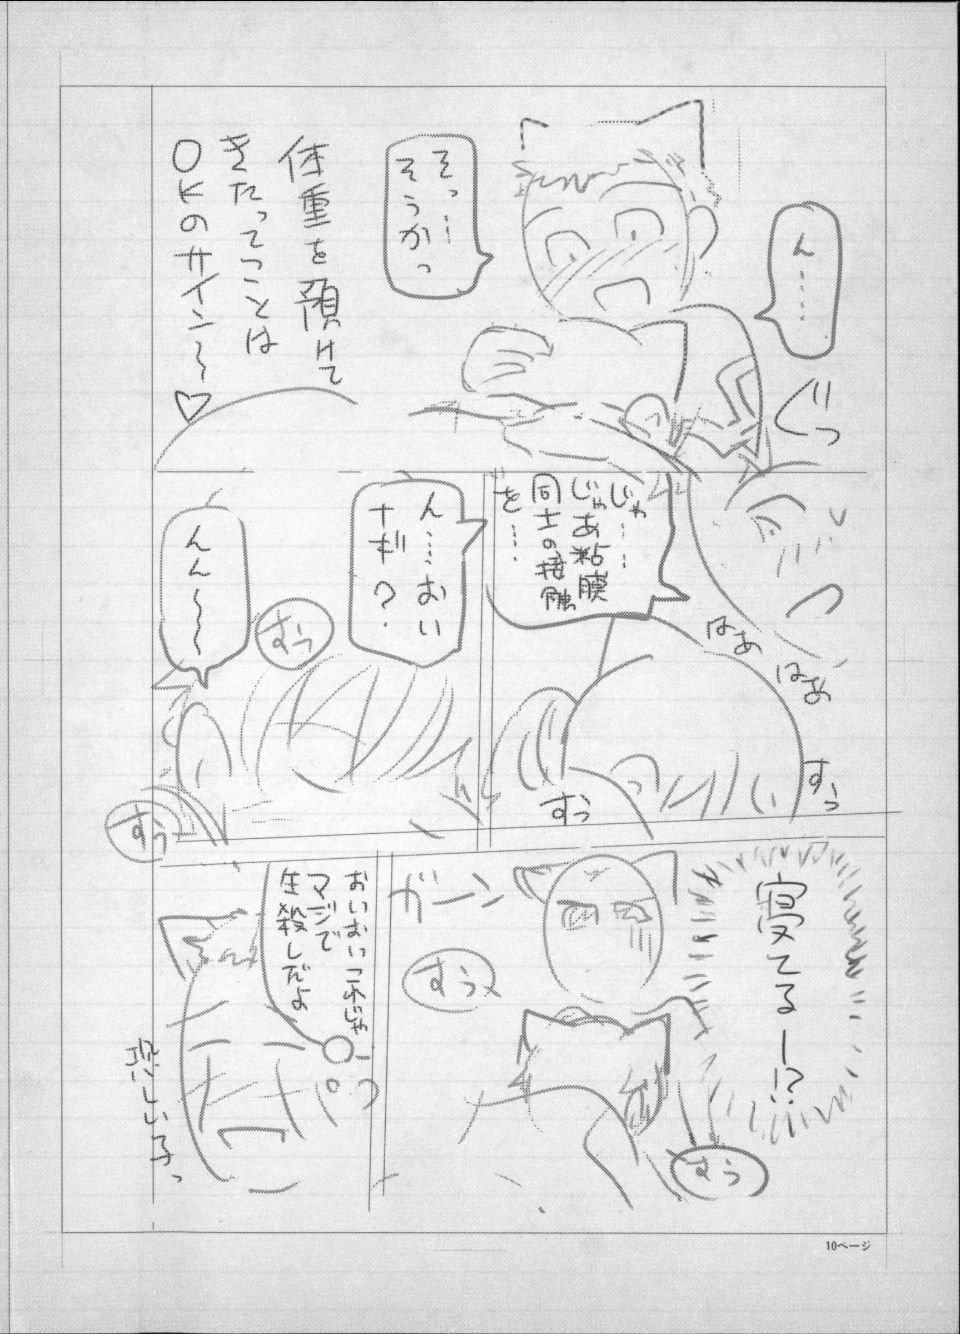 ん……
ぐっ
そっ…
そうかっ
体重を預けて
きたってことは
OKのサイン〜♡
じゃ……
じゃあ粘膜
同士の接触
を……
はぁ
はぁ
すっ
すぅ
ん……おい
ナギ?
んん〜〜
すぅ
すぅ
寝てるー!?
ガーン
すぅ
すぅ
おいおいこれじゃ
マジで
生殺しだよ
10ページ